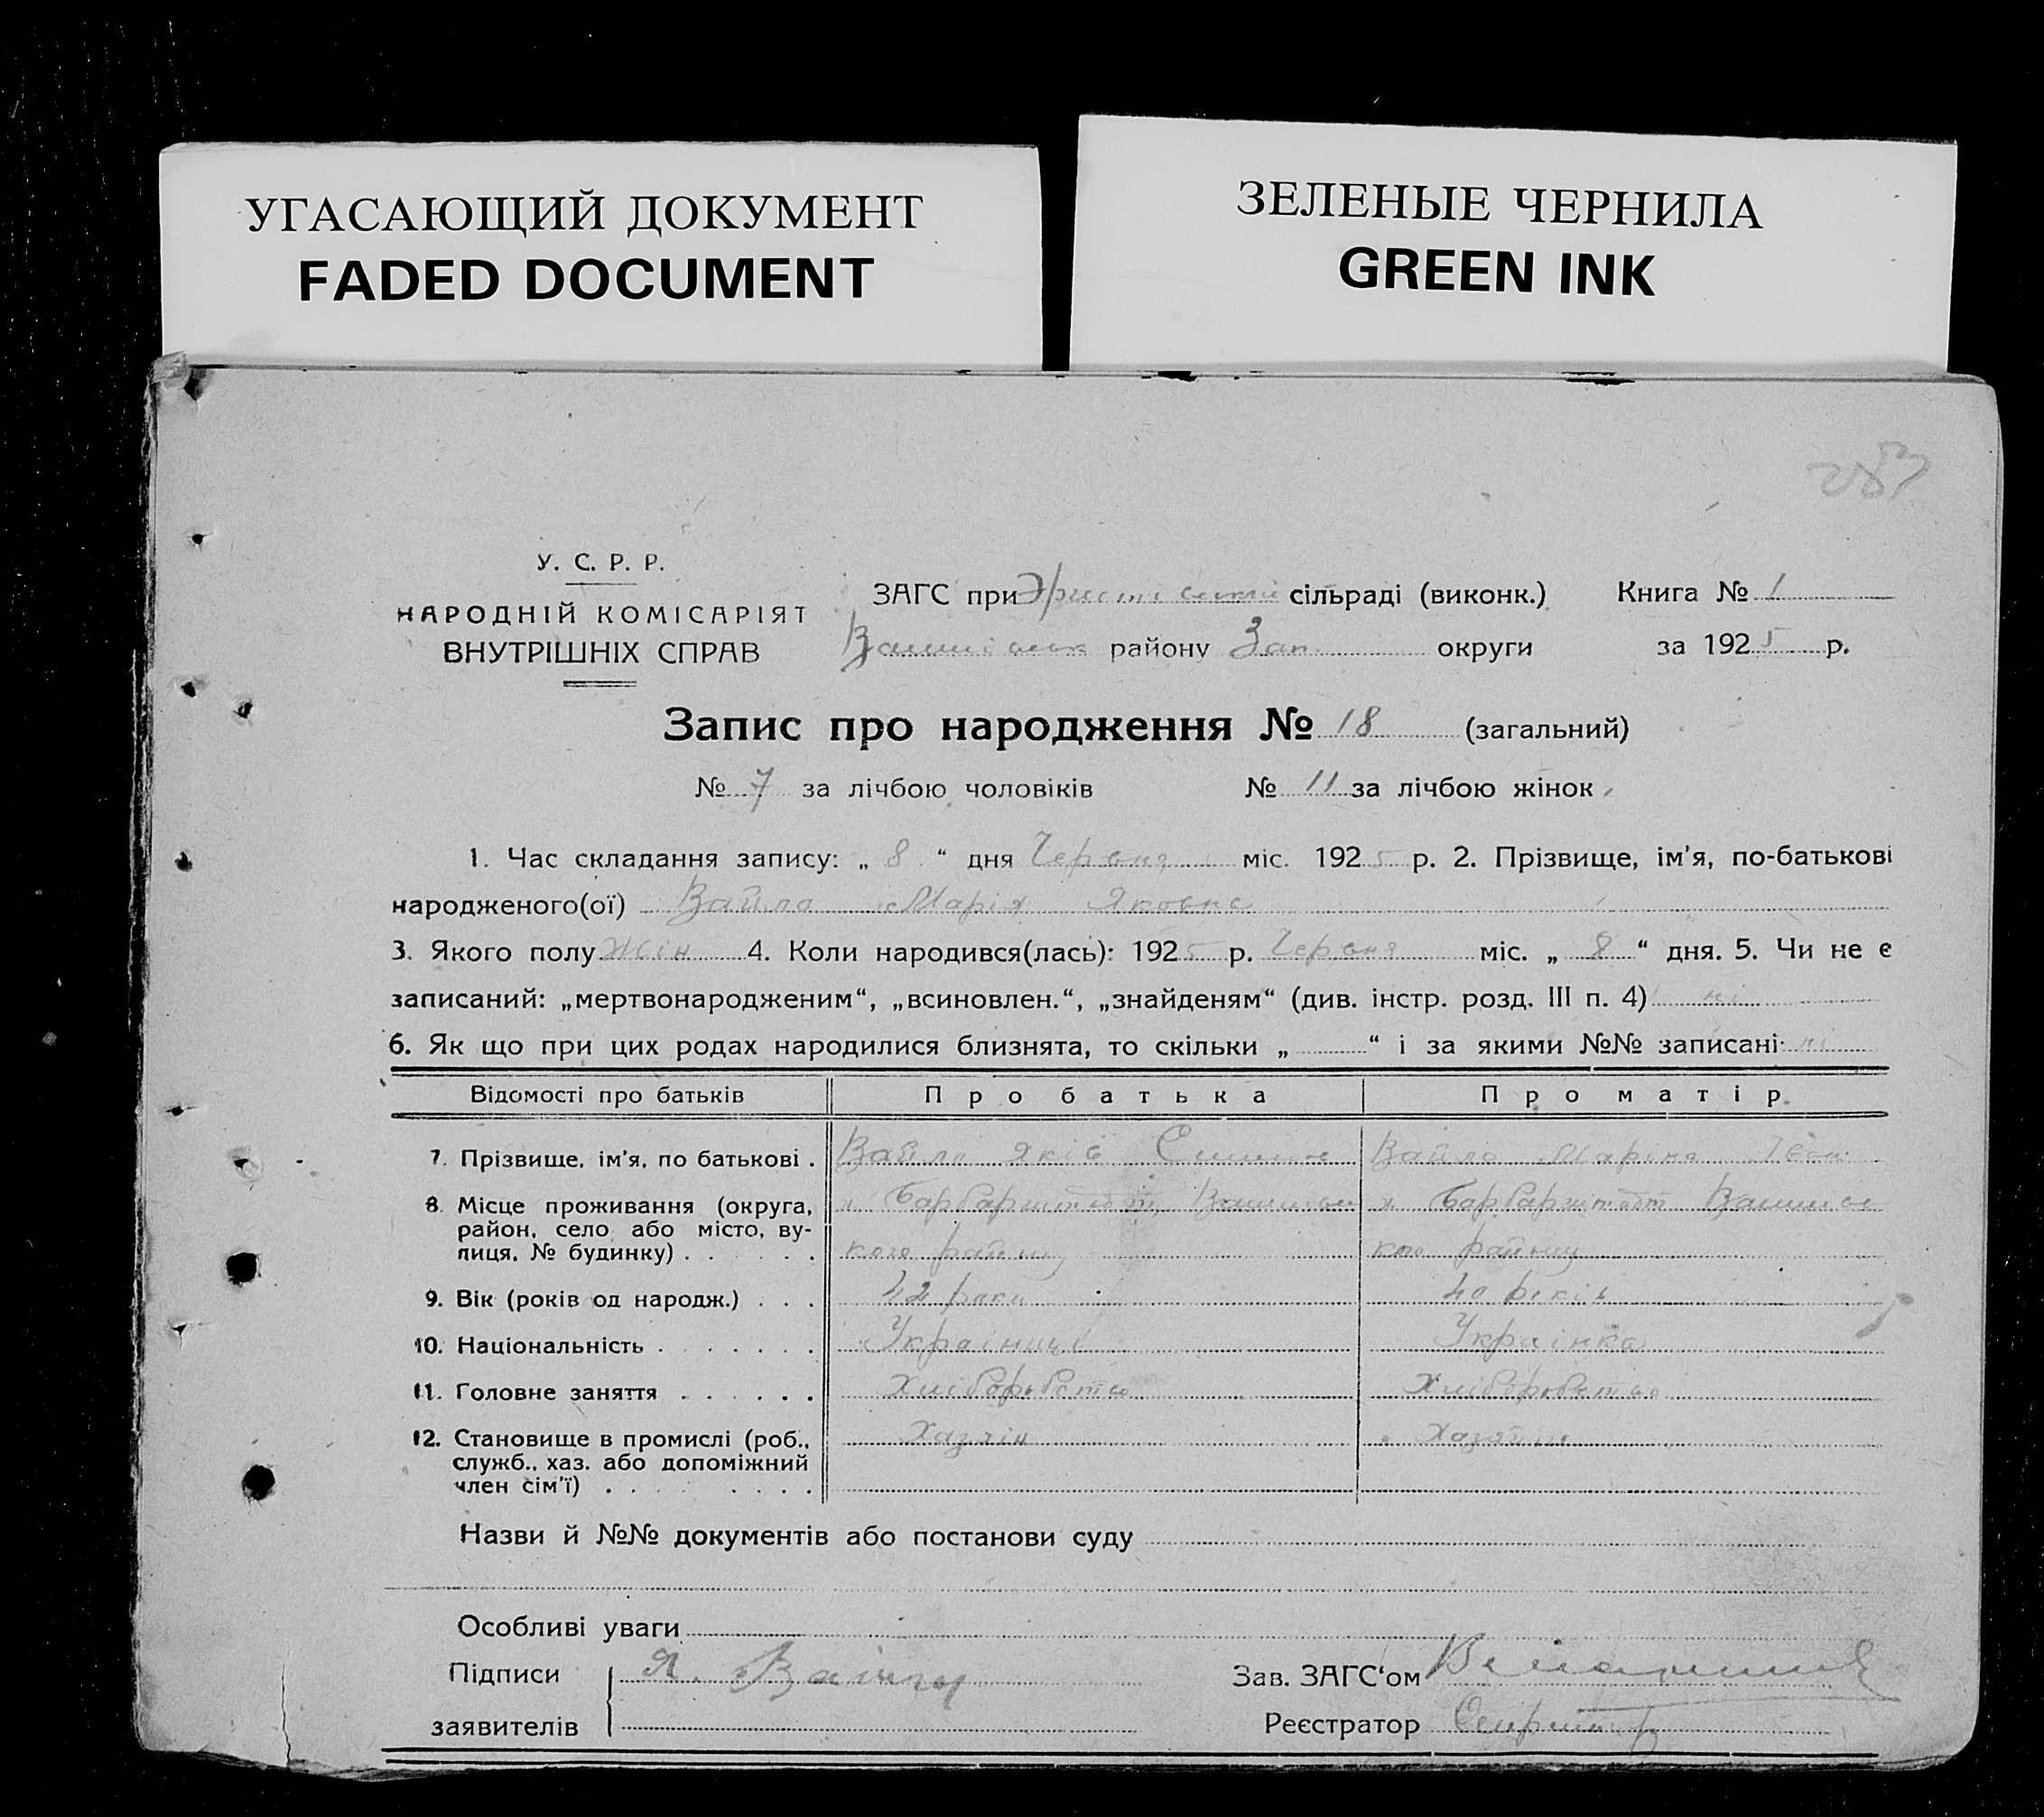 УГАСАЮЩИЙ ДОКУМЕНТ
FADED DOCUMENT
ЗЕЛЕНЫЕ ЧЕРНИЛА
GREEN INK
У. С. Р. Р.
НАРОДНІЙ КОМІСАРІЯТ
ВНУТРІШНІХ СПРАВ
ЗАГС при сільраді (виконк.) Книга № 1
району Зап. округи за 1925 р.
Запис про народження № 18 (загальний)
№ 7 за лічбою чоловіків № 11 за лічбою жінок
1. Час складання запису: „ 8 “ дня Червня міс. 1925 р. 2. Прізвище, ім'я, по-батькові
народженого(ої) Вайло Марія Яковна
3. Якого полу Жін 4. Коли народився(лась): 1925 р. Червня міс. „ 8 “ дня. 5. Чи не є
записаний: „мертвонародженим“, „всиновлен.“, „знайденям“ (див. інстр. розд. III п. 4) ні
6. Як що при цих родах народилися близнята, то скільки „ “ і за якими №№ записані ні
Відомості про батьків Про батька Про матір
7. Прізвище, ім'я, по батькові . Вайло Яків Вайло Марина Іван
8. Місце проживання (округа, район, село або місто, ву-
лиця, № будинку) . . . . . . х Барбарштадт кого району х Барбарштадт кого району
9. Вік (років од народж.) . . . 42 роки 40 років
10. Національність . . . . . . . Українці Українка
11. Головне заняття . . . . . . Хліборобство Хліборобство
12. Становище в промислі (роб., Хазяін
служб., хаз. або допоміжний
член сім'ї) . . . . . . . .
Назви й №№ документів або постанови суду
Особливі уваги
Підписи Я. Зав. ЗАГС'ом
заявителів Реєстратор